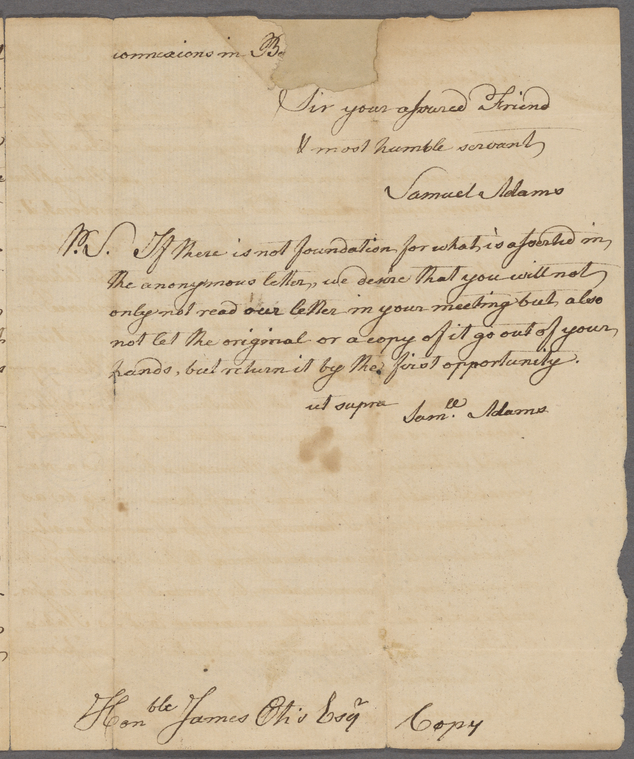 connexions in B
Sir your assured Friend
& most humble servant,
Samuel Adams
P.S. If there is not foundation for what is asserted in
the anonymous letter, we desire that you will not
only not read our letter in your meeting but also
not let the original or a copy of it go out of your
hands, but return it by the first opportunity.
ut supra Samll. Adams
Honble James Otis Esqr Copy